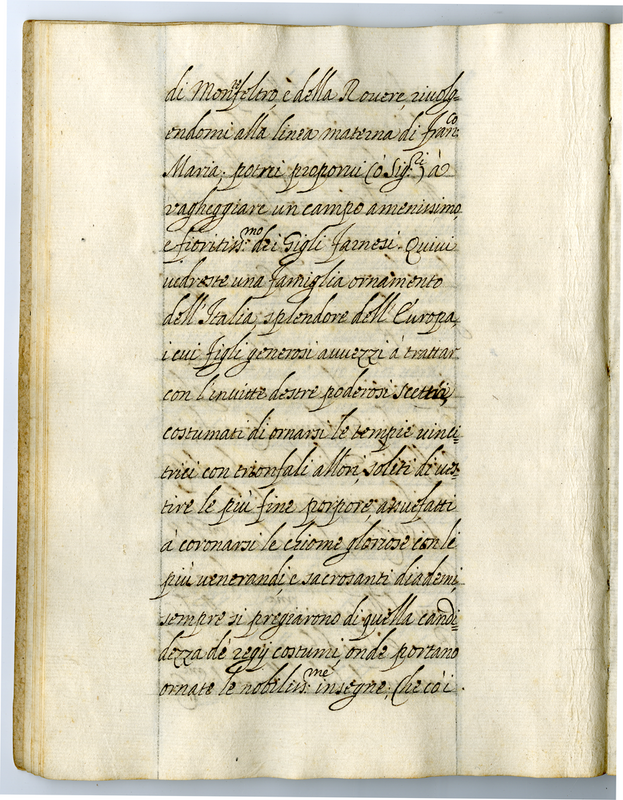 di Monʳᵉfeltro, e della Rouere riuolg=
endomi alla linea materna di Franᶜᵒ
Maria, potrei proporui (ò Sigʳⁱ) à
uagheggiare un campo amenissimo
e fioritissᵐᵒ dei Gigli Farnesi. Quiui
uedreste una famiglia ornamento
dell'Italia, splendore dell'Europa,
i cui figli generosi auuezzi à trattar
con l'inuitte destre poderosi scettri,
costumati di ornarsi le tempie uinci=
trici con trionfali allori, soliti di ues=
tire le più fine porpore assuefatti
à coronarsi le chiome gloriose con li
più uenerandi, e sacrosanti diademi,
sempre si pregiarono di quella candi=
dezza de regij costumi, onde portano
ornate le nobilissᵐᵉ insegne, Che cò i